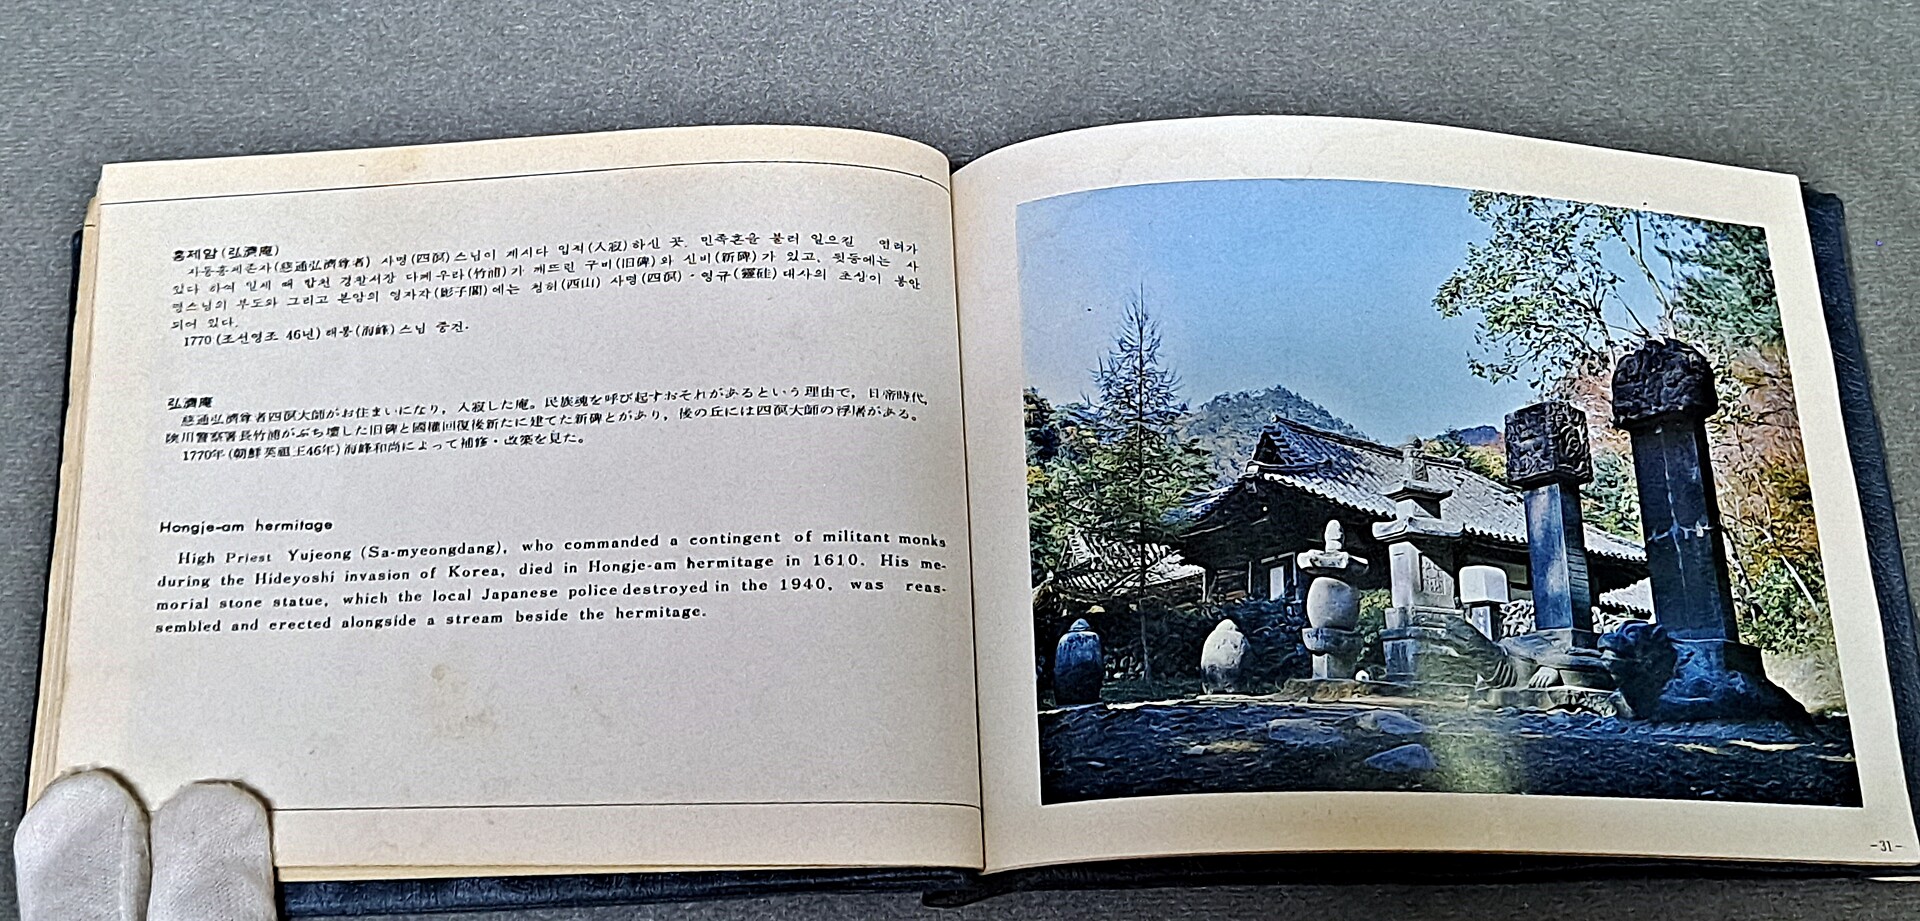 홍제암(弘濟庵)
자통홍제존자(慈通弘濟尊者) 사명(四溟)스님이 계시다 입적(入寂)하신 곳. 민족혼을 불러 일으킬 염려가
있다 하여 일제 때 합천 경찰서장 다께우라(竹浦)가 깨뜨린 구비(旧碑)와 신비(新碑)가 있고, 뒷등에는 사
명스님의 부도와 그리고 본암의 영자각(影子閣)에는 청허(西山) 사명(四溟)·영규(靈硅)대사의 초상이 봉안
되어 있다.
1770(조선영조 46년) 해봉(海峰)스님 중건.
弘濟庵
慈通弘濟尊者四溟大師がお住まいになり, 入寂した庵。民族魂を呼び起すおそれがあるという理由で, 日帝時代,
陜川警察署長竹浦がぶち壊した旧碑と國權回復後新たに建てた新碑とがあり, 後の丘には四溟大師の浮屠がある。
1770年(朝鮮英祖王46年)海峰和尚によって補修・改築を見た。
Hongje-am hermitage
High Priest Yujeong (Sa-myeongdang), who commanded a contingent of militant monks
during the Hideyoshi invasion of Korea, died in Hongje-am hermitage in 1610. His me-
morial stone statue, which the local Japanese police destroyed in the 1940, was reas-
sembled and erected alongside a stream beside the hermitage.
-31-